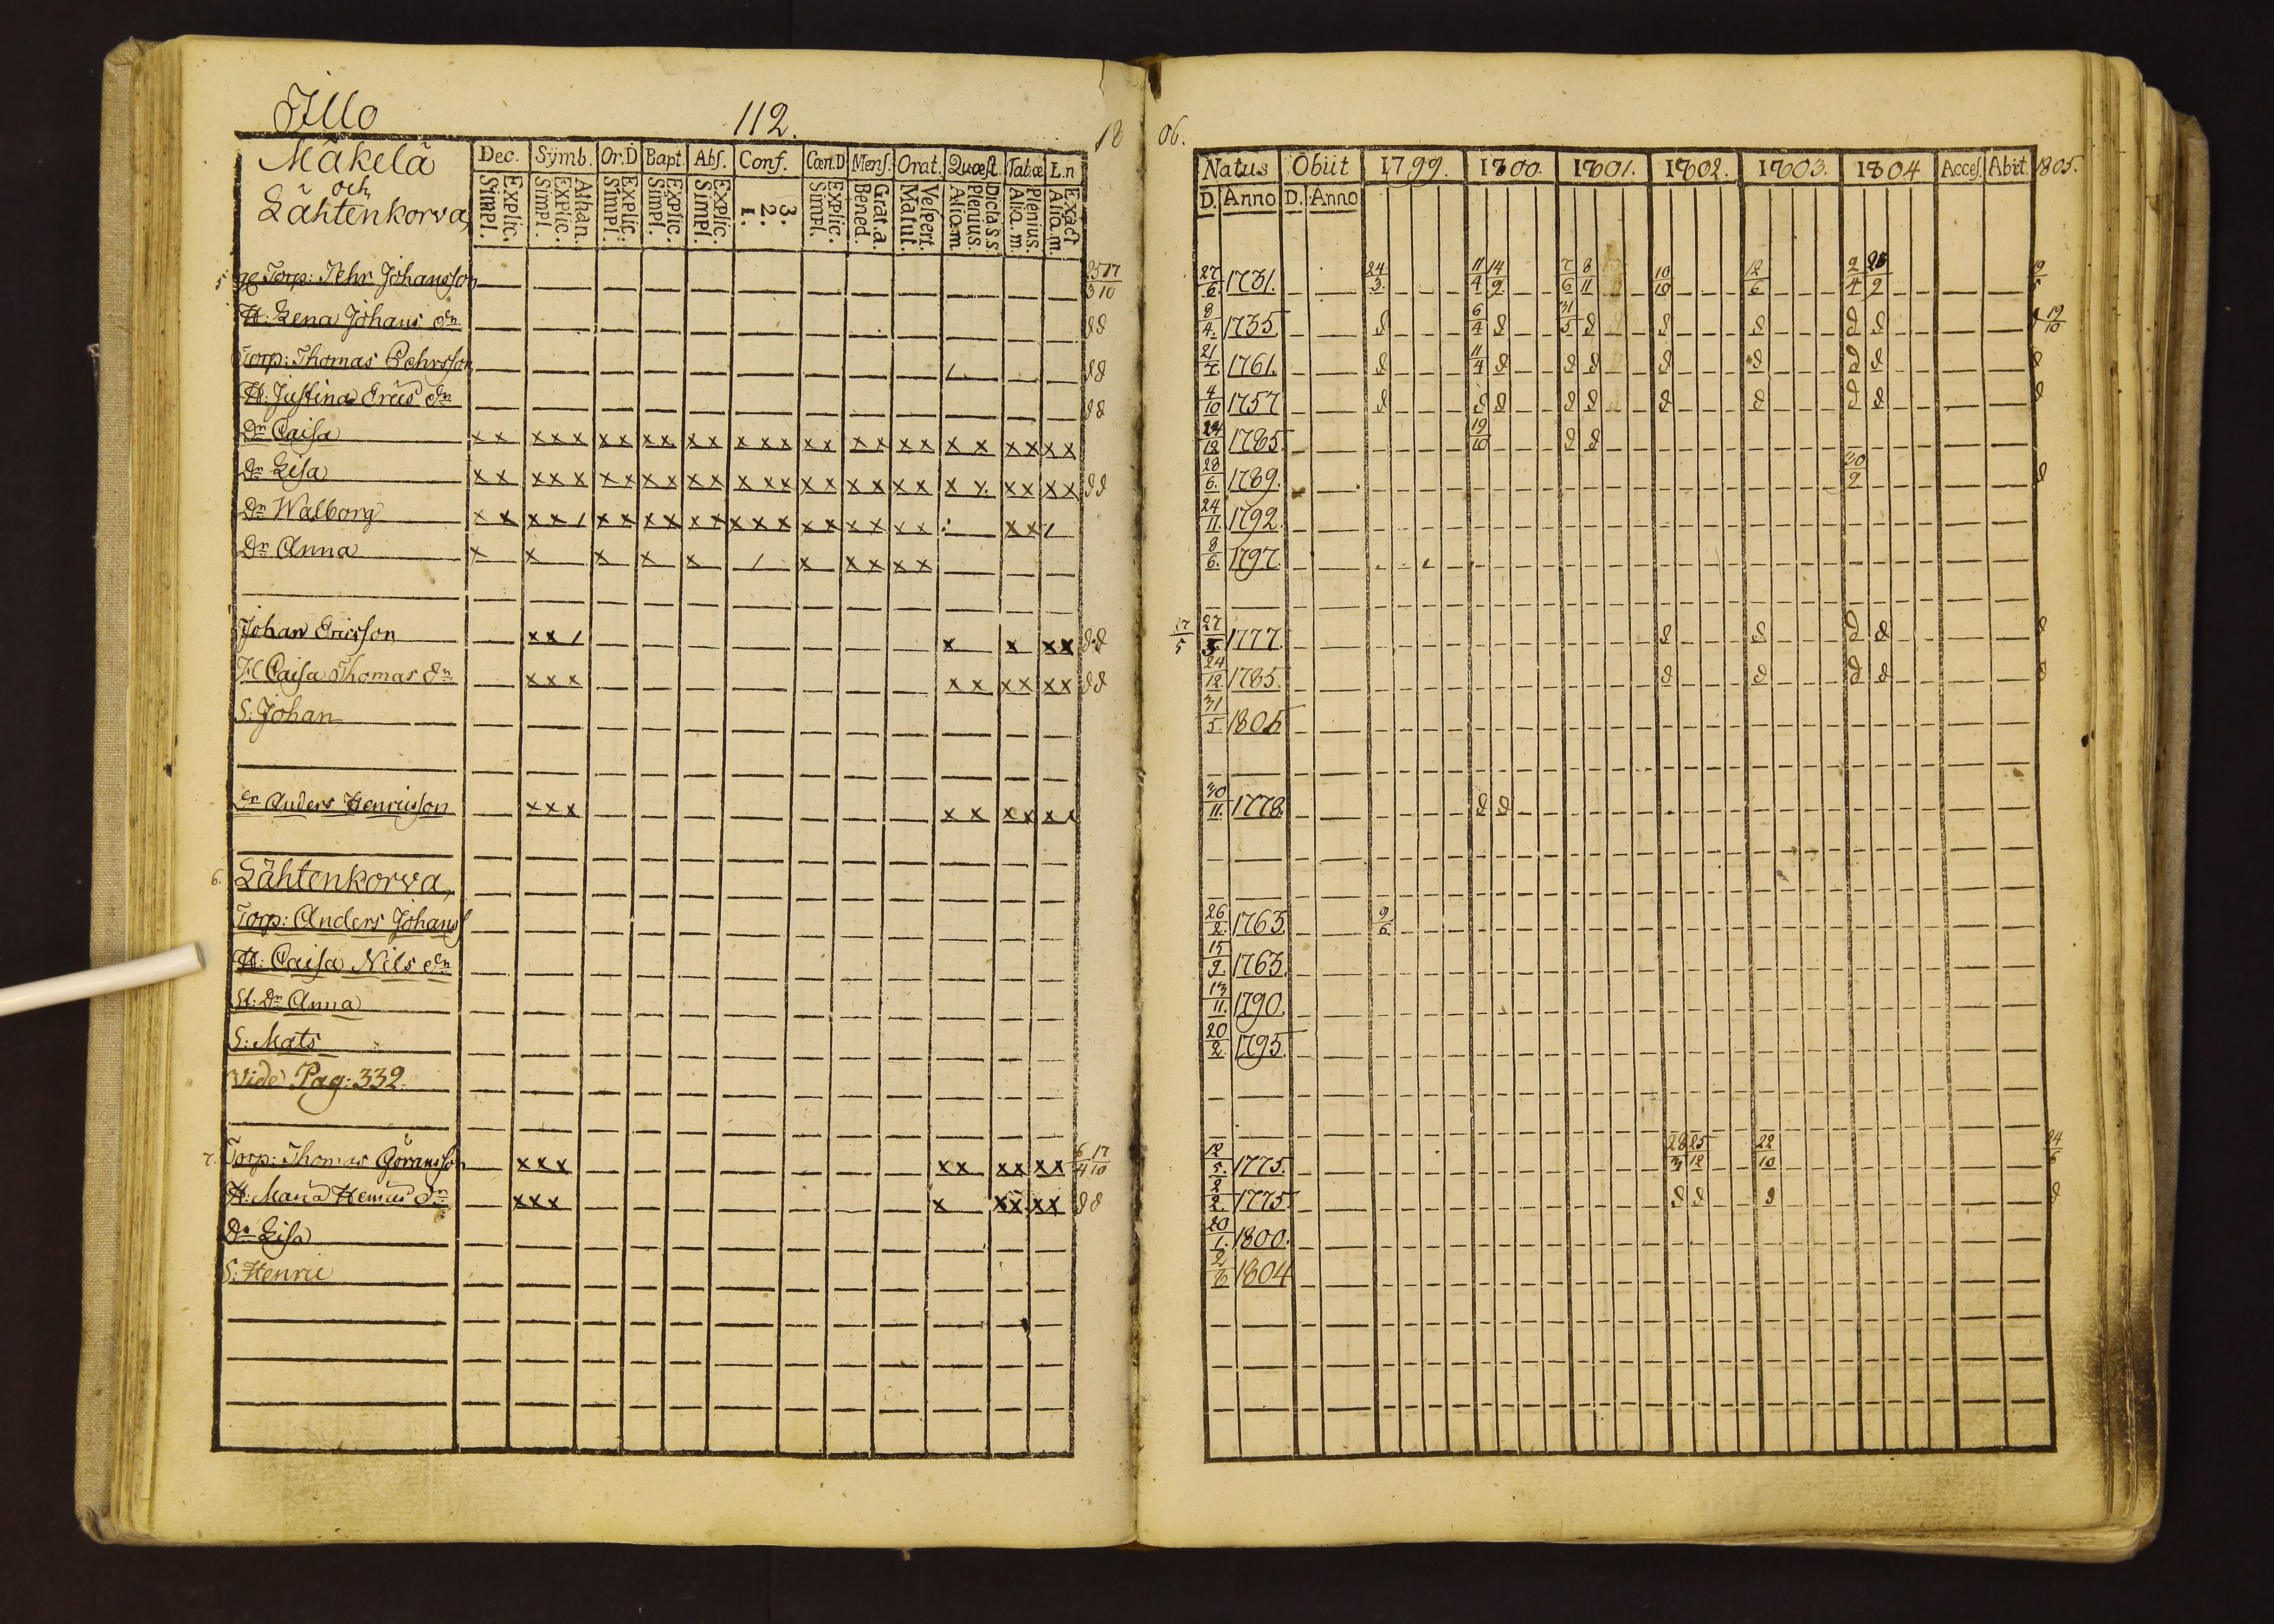 Illo
112.
18
06.
Mäkelä
och
Lähtenkorva,
Dec. Symb. Or.D Bapt. Abſ. Conf. Cæn.D Menſ. Orat. Quæſt Tab.æ L.n
Explic. Simpl. Athan. Explic. Simpl. Explic. Simpl. Explic. Simpl. Explic. Simpl. 3. 2. 1. Explic. Simpl. Grat.a. Bened. Veſpert. Matut. Dicta.s.s. Plenius. Aliq.m. Plenius. Aliq.m. Exact Aliq.m.
Natus Obiit 1799. 1800. 1801. 1802. 1803. 1804 Acceſ. Abiit. 1805.
D. Anno D. Anno
5 Torp: Pehr Johansson 25/3 17/10 27/6. 1731. 24/3 11/4 14/9 7/6 8/11 10/10 12/6 2/4 19/5
H: Lena Johans dr d d 8/4. 1735 d 6/4 d 31/5 d d d d d 19/10
Torp: Thomas Pehrsson d d 21/7. 1761. d 11/4 d d d d d d d d
H: Justina Erics dr d d 4/10 1757 d d d d d d d d d d
Dr Caisa x x x x x x x x x x x x x x x x x x x x x x x x x x 24/12 1785 19/10 d d
Dr Lisa x x x x x x x x x x x x x x x x x x x x x x x x x x d d 28/6. 1789. 30/9 d
Dr Walborg x x x x / x x x x x x x x x x x x x x x x x / 24/11. 1792.
Dr Anna x x x x x / x x x x x 8/6. 1797.
Johan Ericsson x x / x x x x d d 27/5 27/5. 1777. d d d d d
H Caisa Thomas dr x x x x x x x x x d d 24/12 1785. d d d d d
S: Johan 31/5. 1805
Anders Henricsson x x x x x x x x 30/11. 1778. d d
6. Lähtenkorva,
Torp: Anders Johans 26/2. 1763. 9/6
H: Caisa Nils dr 15/9. 1763.
Dr Anna 13/11. 1790.
S: Mats 20/2. 1795.
Vide Pag: 332.
7. Torp: Thomas Göransson x x x x x x x x x 6/4 17/10 12/5. 1775. 28/3 25/12 22/10 24/6
H: Maria Henrics dr x x x x x x x x d d 2/2. 1775. d d d d
Dr Lisa 20/1. 1800.
S: Henric 2/8 1804